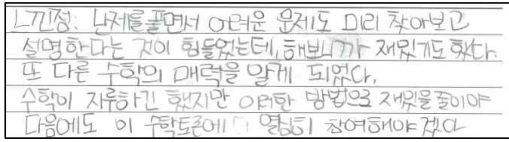 느낀점: 난제를 풀면서 어려운 문제도 미리 찾아보고
설명한다는 것이 힘들었는데, 해보니까 재밌기도 했다.
또 다른 수학의 매력을 알게 되었다.
수학이 지루하긴 했지만 이러한 방법으로 재밌을줄이야
다음에도 이 수학토론에 열심히 참여해야 겠다